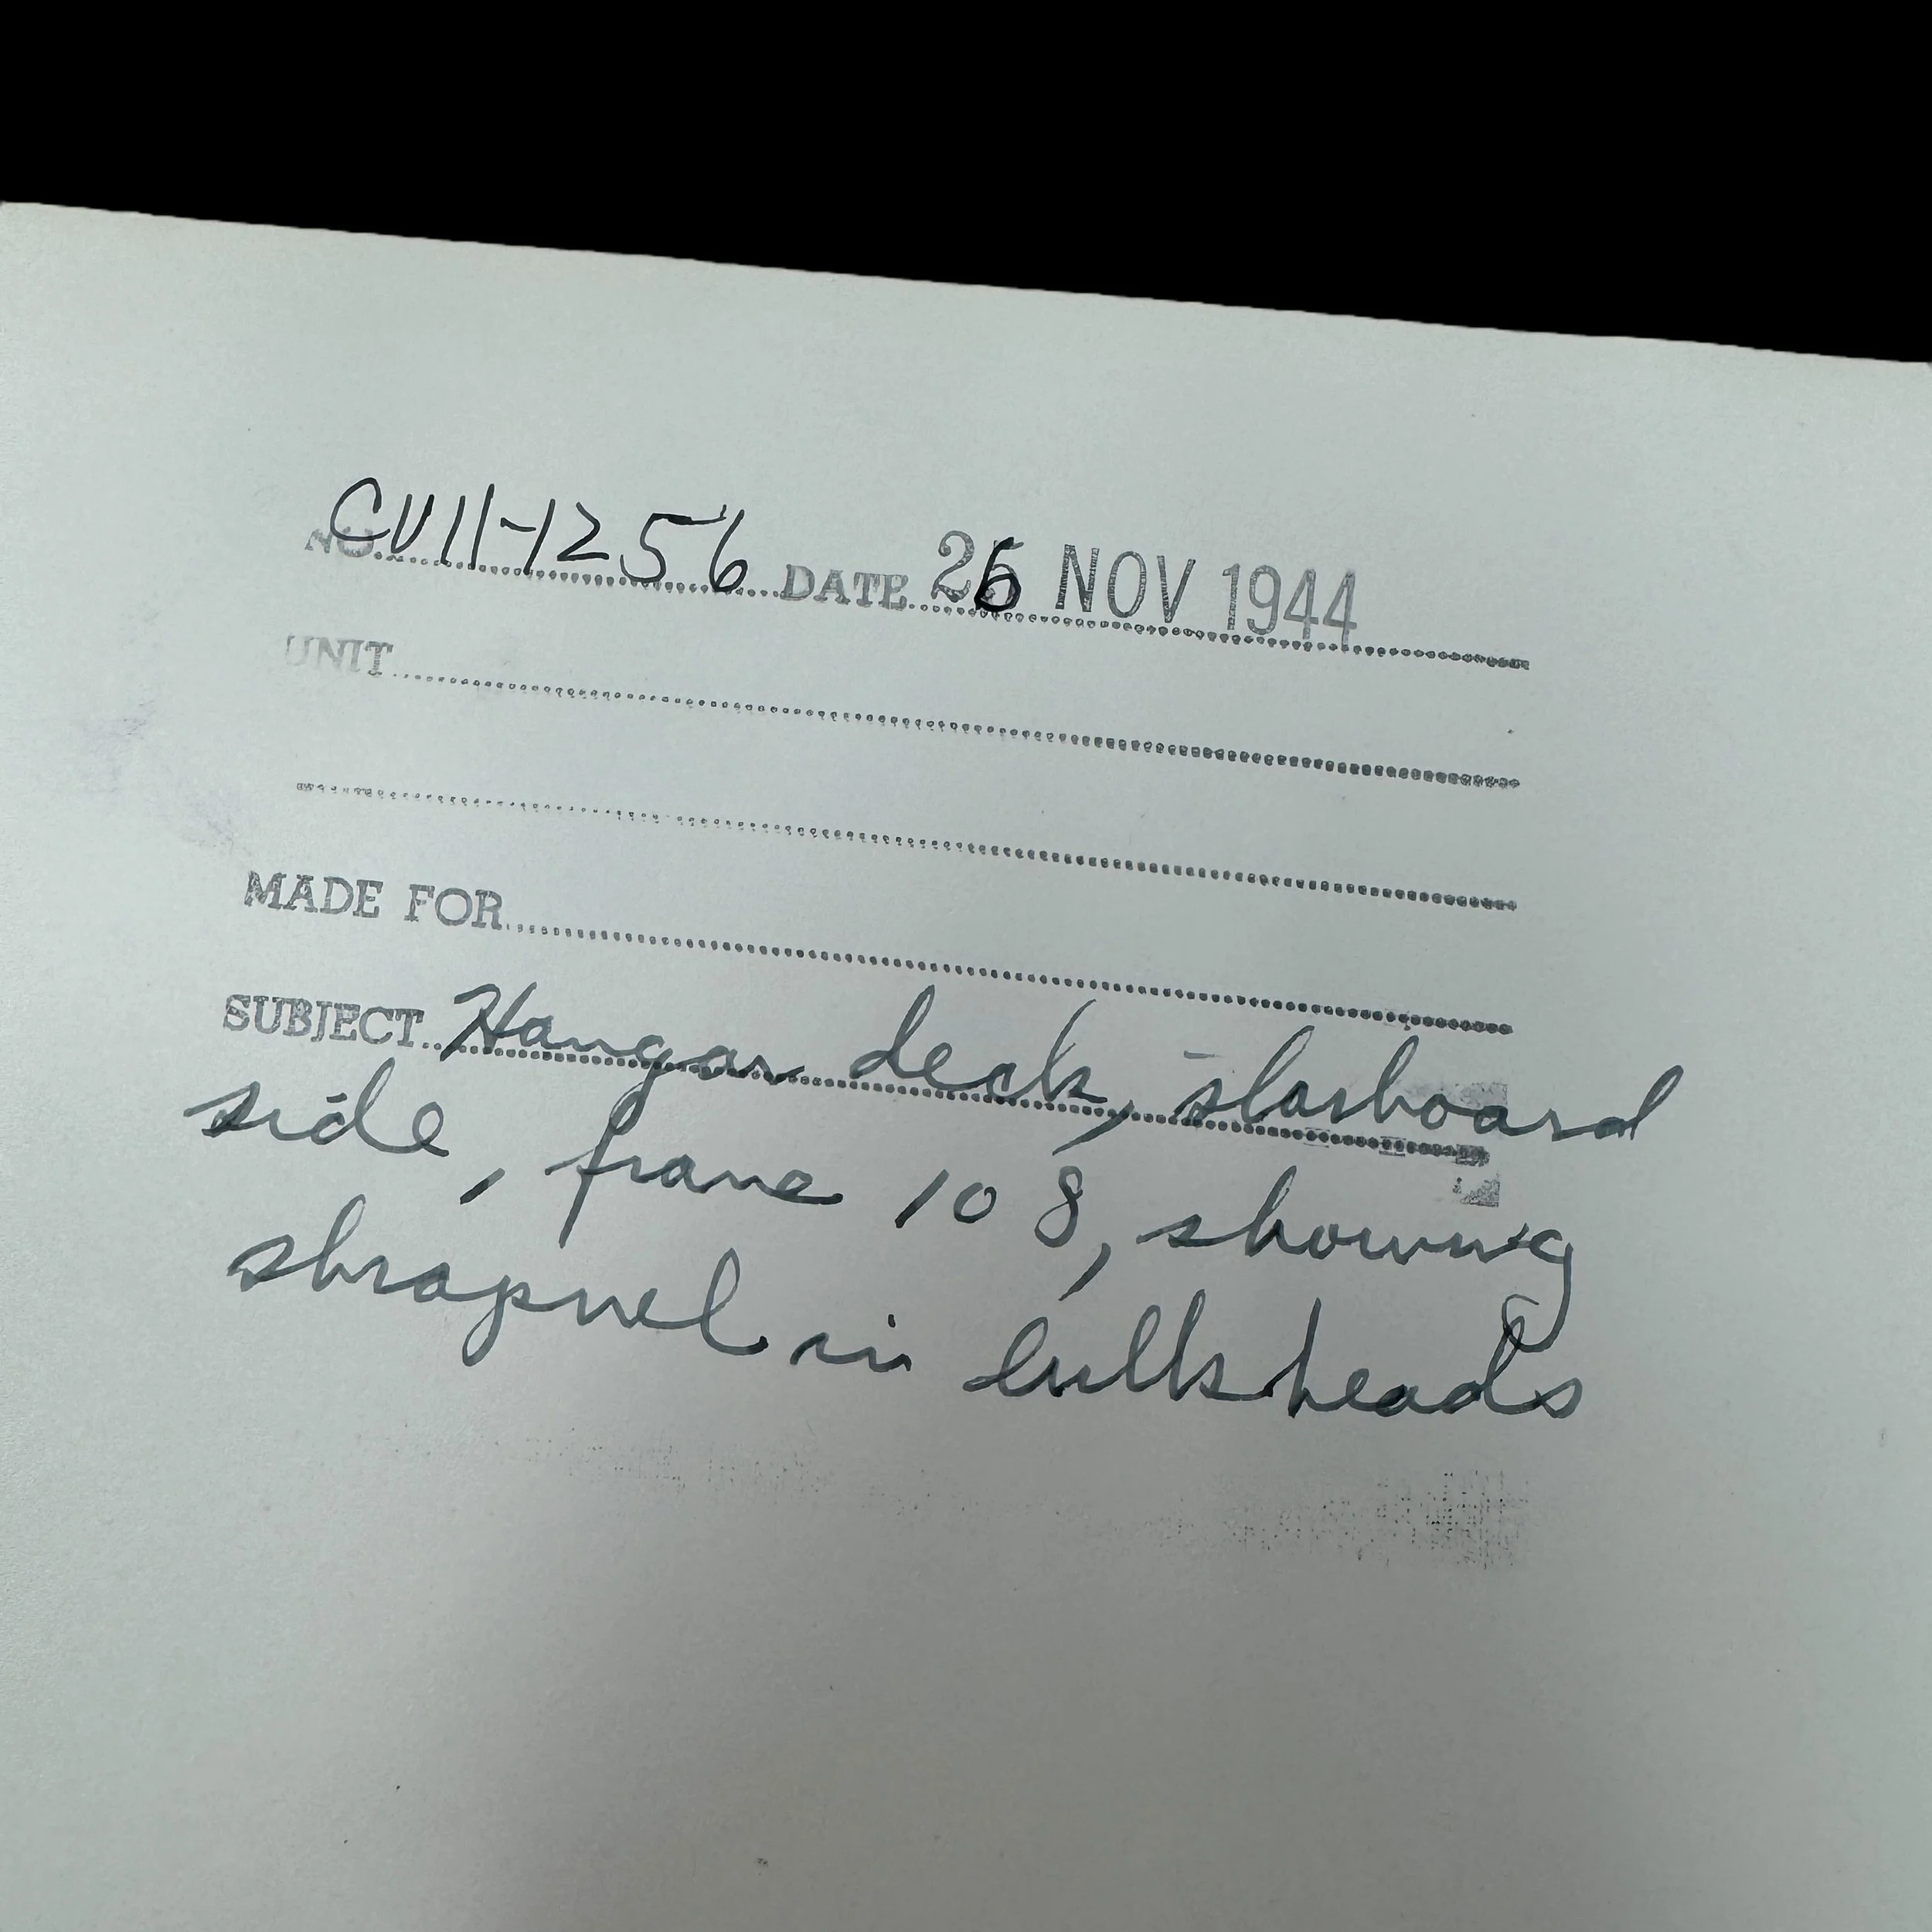 NO. CV11-1256 DATE 26 NOV 1944
UNIT
MADE FOR
SUBJECT Hangar deck, starboard
side, frame 108, showing
shrapnel in bulkheads